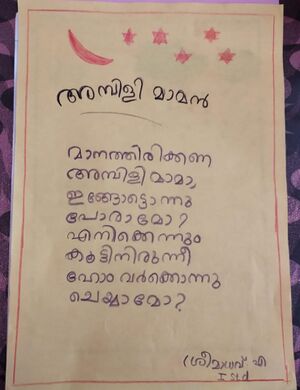 അമ്പിളി മാമൻ
മാനത്തിരിക്കണ
അമ്പിളി മാമാ,
ഇങ്ങോട്ടൊന്നു
പോരാമോ ?
എനിക്കെന്നും
കൂട്ടിനിരുന്നീ
ഹോം വർക്കൊന്നു
ചെയ്യാമോ ?
ശ്രീമാധവ് എ
I Std